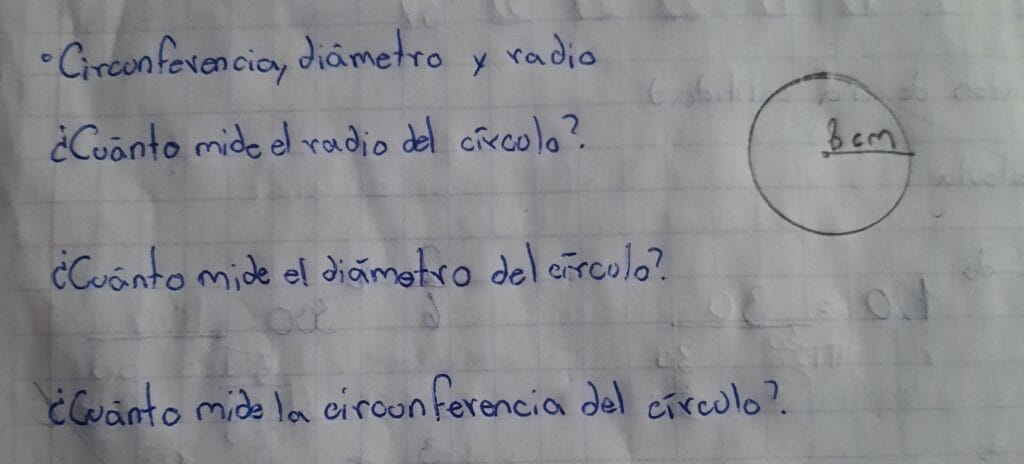 • Circonferencia, diámetro y radio
¿Cuánto mide el radio del círculo?
8 cm
¿Cuánto mide el diámetro del círculo?
¿Cuánto mide la circonferencia del círculo?.